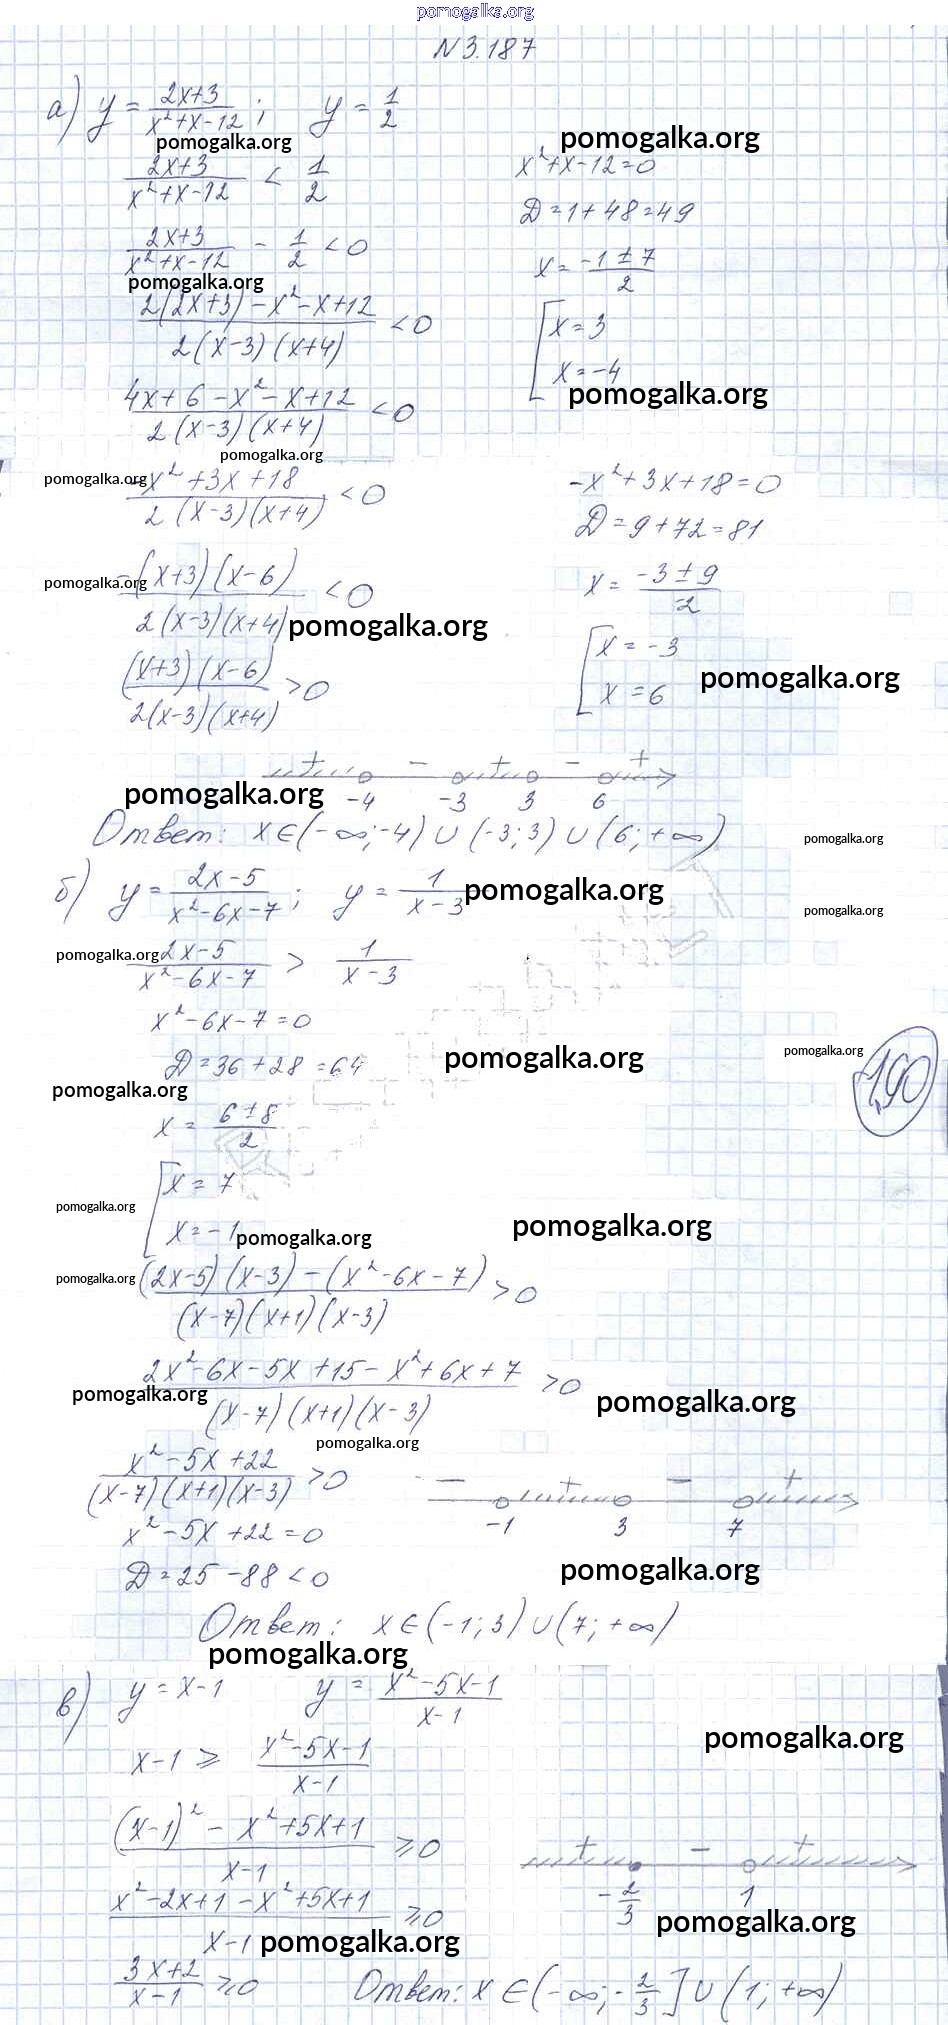 pomogalka.org
N 3.187
а) y = (2x+3)/(x²+x-12); y = 1/2
pomogalka.org
pomogalka.org
(2x+3)/(x²+x-12) < 1/2
x²+x-12=0
Д=1+48=49
(2x+3)/(x²+x-12) - 1/2 < 0
x = (-1±7)/2
pomogalka.org
(2(2x+3)-x²-x+12)/(2(x-3)(x+4)) < 0
[x=3
x=-4
pomogalka.org
(4x+6-x²-x+12)/(2(x-3)(x+4)) < 0
pomogalka.org
pomogalka.org
(-x²+3x+18)/(2(x-3)(x+4)) < 0
-x²+3x+18=0
Д=9+72=81
pomogalka.org
(-(x+3)(x-6))/(2(x-3)(x+4)) < 0
x = (-3±9)/-2
pomogalka.org
((x+3)(x-6))/(2(x-3)(x+4)) > 0
[x=-3
x=6
pomogalka.org
+ - + - +
-4 -3 3 6
pomogalka.org
Ответ: x∈(-∞;-4)∪(-3;3)∪(6;+∞)
pomogalka.org
б) y = (2x-5)/(x²-6x-7); y = 1/(x-3)
pomogalka.org
pomogalka.org
pomogalka.org
(2x-5)/(x²-6x-7) > 1/(x-3)
x²-6x-7=0
Д=36+28=64
pomogalka.org
pomogalka.org
190
pomogalka.org
x = (6±8)/2
[x=7
x=-1
pomogalka.org
pomogalka.org
pomogalka.org
pomogalka.org
((2x-5)(x-3)-(x²-6x-7))/((x-7)(x+1)(x-3)) > 0
(2x²-6x-5x+15-x²+6x+7)/((x-7)(x+1)(x-3)) > 0
pomogalka.org
pomogalka.org
pomogalka.org
(x²-5x+22)/((x-7)(x+1)(x-3)) > 0
- + - +
-1 3 7
x²-5x+22=0
Д=25-88<0
pomogalka.org
Ответ: x∈(-1;3)∪(7;+∞)
pomogalka.org
в) y=x-1 y = (x²-5x-1)/(x-1)
pomogalka.org
x-1 ⩾ (x²-5x-1)/(x-1)
((x-1)²-x²+5x+1)/(x-1) ⩾ 0
+ - +
-2/3 1
(x²-2x+1-x²+5x+1)/(x-1) ⩾ 0
pomogalka.org
pomogalka.org
(3x+2)/(x-1) ⩾ 0
Ответ: x∈(-∞;-2/3]∪(1;+∞)